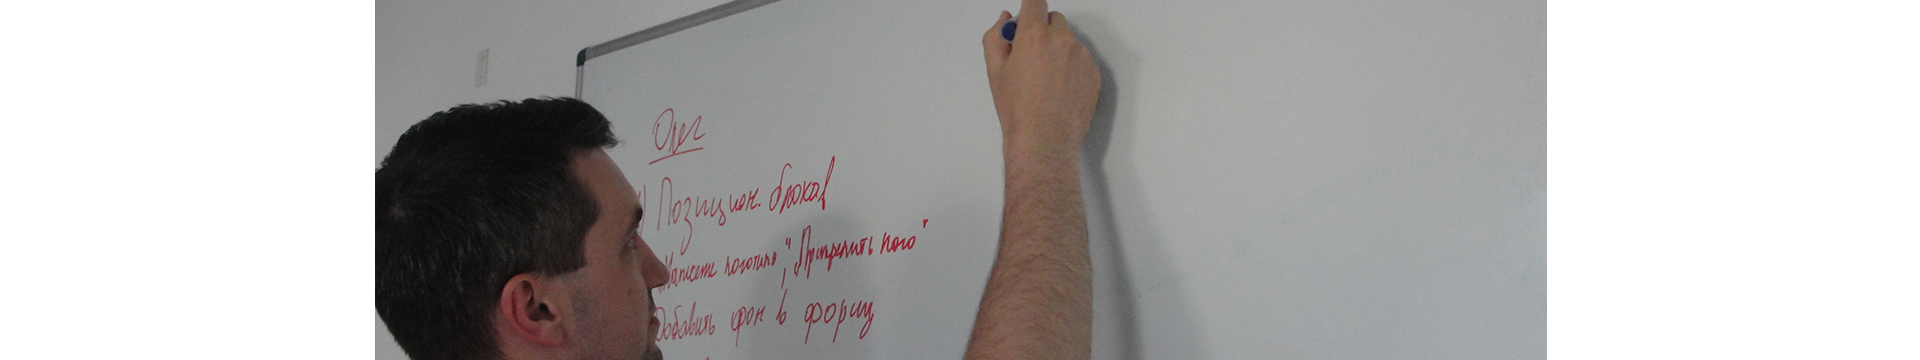 Олег
) Позицион. блоков
логотипа, "Прикрепить лого"
Добавить фон в форму